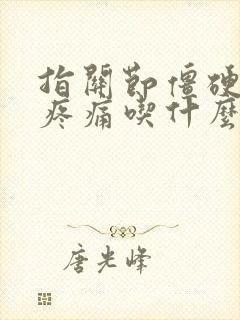 指關節僵硬
疼痛喫什麼
唐光峰